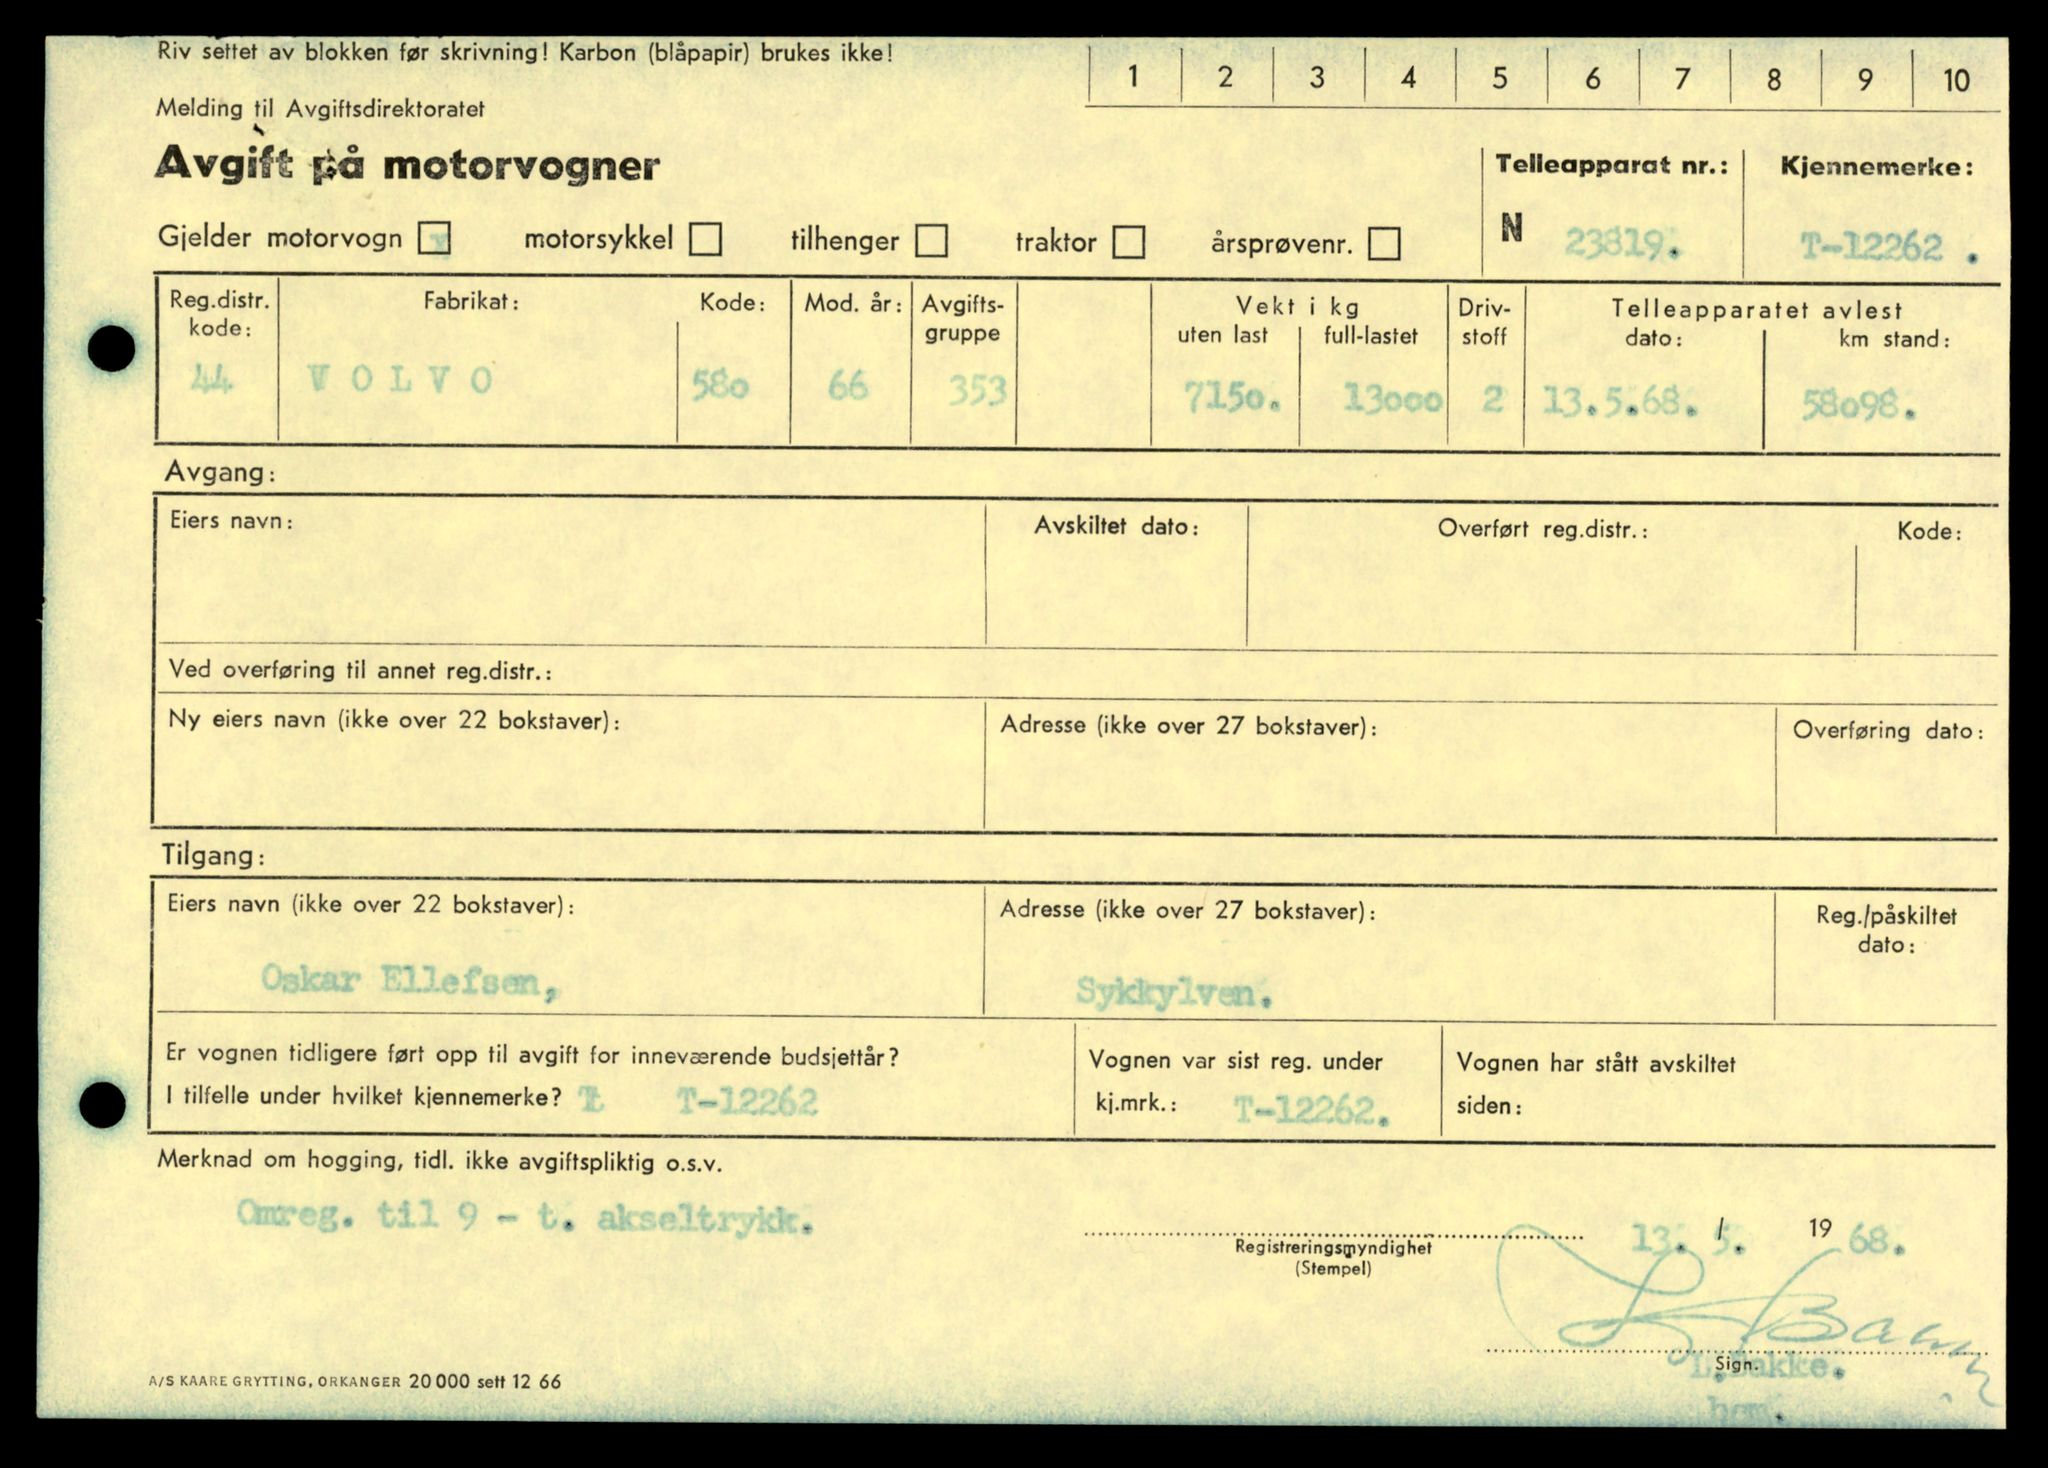 Riv settet av blokken før skrivning! Karbon (blåpapir) brukes ikke!
1 2 3 4 5 6 7 8 9 10
Melding til Avgiftsdirektoratet
Avgift på motorvogner
Telleapparat nr.: Kjennemerke:
Gjelder motorvogn v motorsykkel tilhenger traktor årsprøvenr.
N 23819. T-12262 .
Reg.distr. kode: Fabrikat: Kode: Mod. år: Avgifts-gruppe Vekt i kg uten last full-lastet Driv-stoff Telleapparatet avlest dato: km stand:
44 VOLVO 580 66 353 7150. 13000 2 13.5.68. 58098.
Avgang:
Eiers navn: Avskiltet dato: Overført reg.distr.: Kode:
Ved overføring til annet reg.distr.:
Ny eiers navn (ikke over 22 bokstaver): Adresse (ikke over 27 bokstaver): Overføring dato:
Tilgang:
Eiers navn (ikke over 22 bokstaver): Adresse (ikke over 27 bokstaver): Reg./påskiltet dato:
Oskar Ellefsen, Sykkylven.
Er vognen tidligere ført opp til avgift for inneværende budsjettår? Vognen var sist reg. under Vognen har stått avskiltet
I tilfelle under hvilket kjennemerke? T-12262 kj.mrk.: T-12262. siden:
Merknad om hogging, tidl. ikke avgiftspliktig o.s.v.
Omreg. til 9 - t. akseltrykk.
13. / 5. 19 68.
Registreringsmyndighet
(Stempel)
L Bakke
Sign.
L.Bakke.
bem.
A/S KAARE GRYTTING, ORKANGER 20 000 sett 12 66